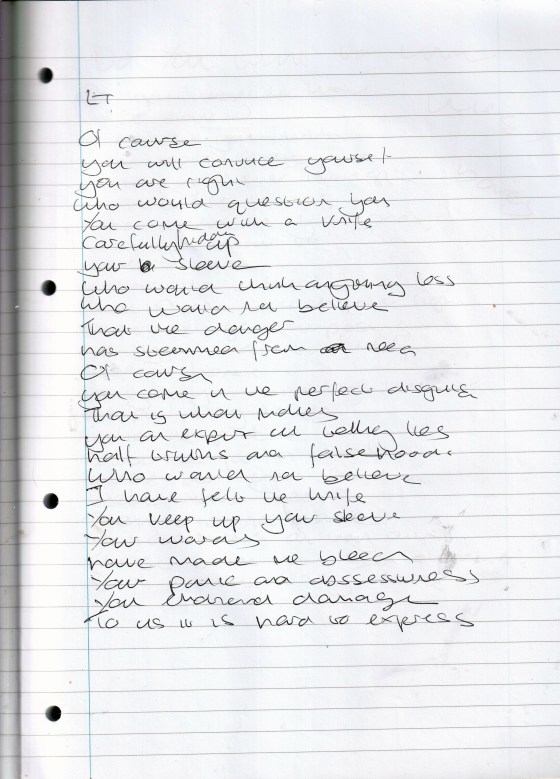 LT
Of course
you will convince yourself
you are right
who would question you
You come with a knife
Carefully hidden up
your sleeve
who would think anything less
who would not believe
That the danger
has stemmed from need
Of course
you come in the perfect disguise
That is what makes
you an expert in telling lies
half truths and falsehoods
Who would not believe
I have felt the knife
You keep up your sleeve
Your words
have made me bleed
Your panic and obsessiveness
Your damage
To us it is hard to express